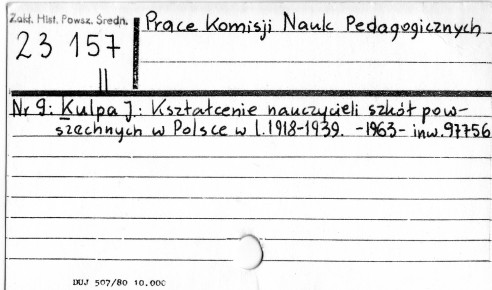 Zakł. Hist. Powsz. Średn.
23 157
II
Prace Komisji Nauk Pedagogicznych
Nr 9: Kulpa J.: Kształcenie nauczycieli szkół pow-
szechnych w Polsce w l. 1918-1939. -1963- inw. 97756
DUJ 507/80 10.000